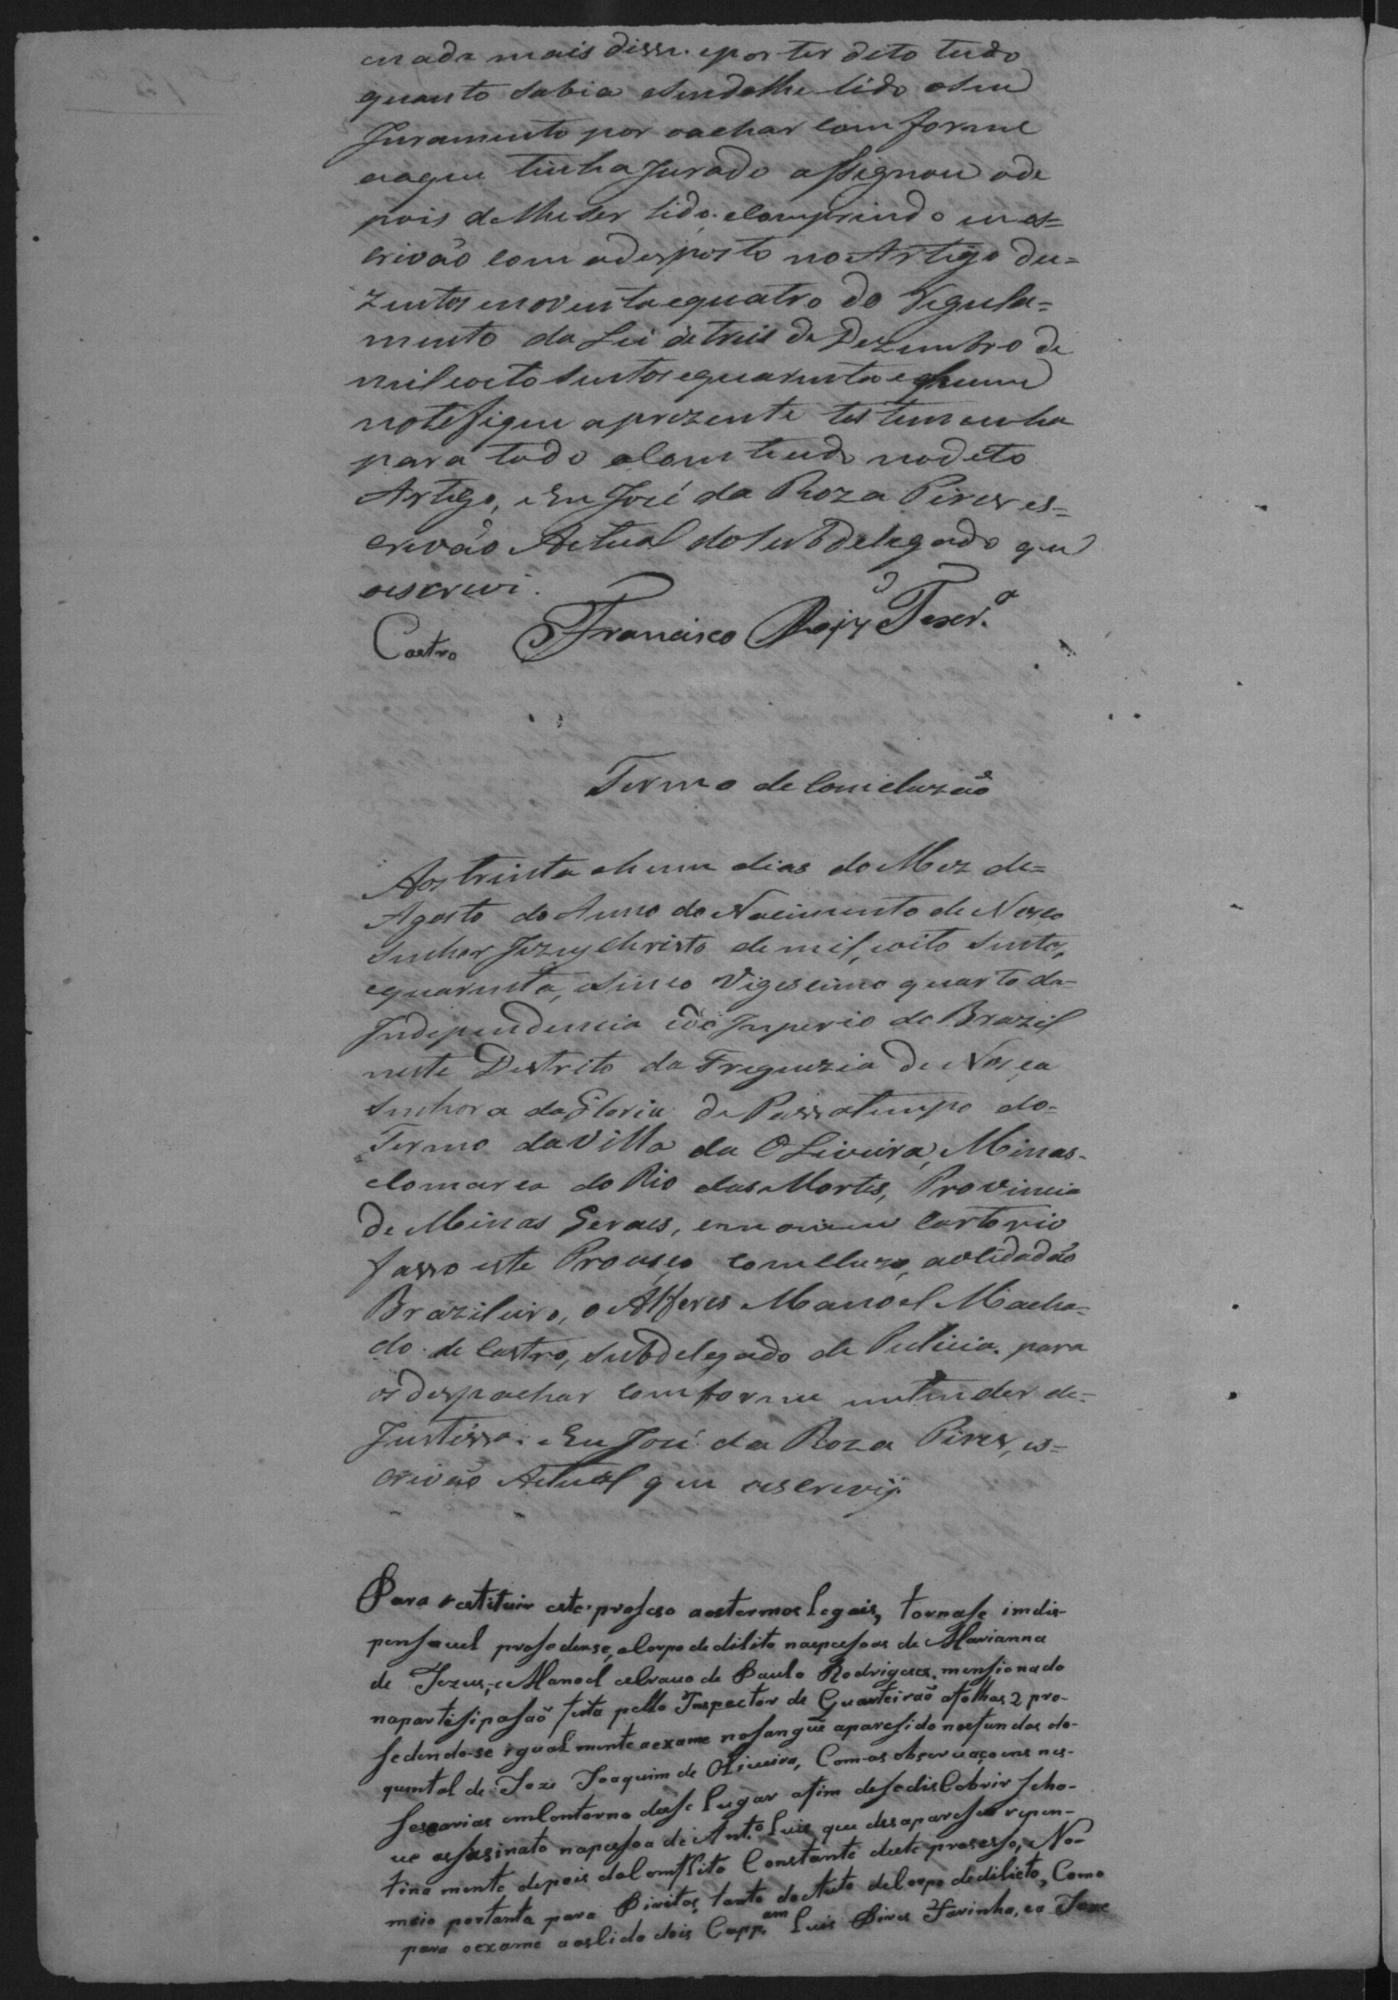 enada mais disse. epor ter dito tudo
quanto sabia esendolhe lido oseu
Juramento por oachar comforme
eaque tinha Jurado assignou ode
pois delheser lido. eComprindo eu es=
crivão com odesposto no Artigo du=
zentos enoventa equatro do Regula=
mento da Lei de treis de Dezembro de
mil eoito sentos equarenta ehum
notefiquei aprezente testemunha
para todo o Comteudo nodeto
Artigo, eEu José da Roza Pires es=
crivão Actual do Subdelegado que
oescrevi.
Castro Francisco Texer.ª
Termo de Comcluzão
Aos trinta ehum dias do Mez de=
Agosto do Anno do Nacimento de Nosso
Senhor Jezus Christo de mil, eoito sento,
equarenta, esinco Vigessimo quarto da=
Independencia edo Imperio do Brazil
neste Destrito da Freguezia de Nossa
Senhora da Gloria de Passatempo do=
Termo da Villa da OLiveira, Minas=
Comarca do Rio das Mortes, Provincia
de Minas Geraes, em meu Cartorio
fasso este Prosseço Comcluzo, aoCidadão
Brazileiro, o Alferes Manoel Macha=
do de Castro, Subdelegado de Pulicia. para
odespachar Comforme entender de=
Justissa. eEu José da Roza Pires, es=
crivão Actual que oescrevy.
Para restituir este prosseso aostermos legais, tornase imdis-
pensavel prosedense, aCorpo dedilito naspessoas de Marianna
de Jezus, e Manoel escravo de Paulo Rodrigues, mensionado
napartisipasaõ feita pello Inspector de Quarteiraõ afolhas 2 pro-
sedendo-se igualmente aexame nosangue aparesido nosfundos do-
quintal de Joze Joaquim de Oliveira, Com-as observaçoens nes-
sesarias emContorno dese lugar afim desedisCobrir seho-
ve assasinato napessoa de Ant.º Luis que desapareseu repen-
tina mente depois doConflito Constante deste prosesso, No-
meio portanto para Piritos tanto doAuto deCorpo dedelicto, Como
para oexame aoslido dois Capp.am Luis Pires Farinho, eo Joze